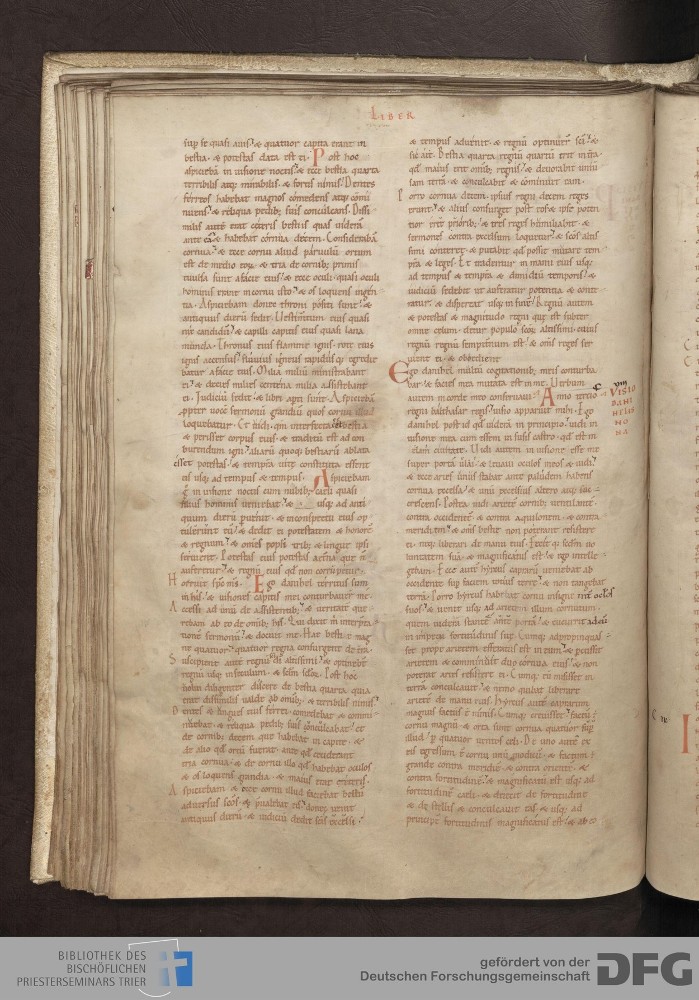 LIBER
sup se quasi auis & quatuor capita erant in
bestia & potestas data est ei. Post hoc
aspiciebā in uisione noctis & ecce bestia quarta
terribilis atq; mirabilis & fortis nimis. Dentes
ferreos habebat magnos comedens atq; cōmi
nuens & reliqua pedib; suis conculcans. Dissi
milis autē erat cęteris bestiis quas uiderā
ante eā & habebat cornua decem. Considerabā
cornua & ecce cornu aliud paruulū ortum
est de medio eoȝ & tria de cornib; primis
euulsa sunt a facie eius & ecce oculi quasi oculi
hominis erant in cornu isto & os loquens ingen
tia. Aspiciebam donec throni positi sunt &
antiquus dierū sedit. Uestimentum eius quasi
nix candidū & capilli capitis eius quasi lana
munda. Thronus eius flammę ignis rotę eius
ignis accensus fluuius igneus rapidusq; egredie
batur a facie eius. Milia miliū ministrabant
ei & decies milies centena milia assistebant
ei. Judiciū sedit & libri aperti sunt. Aspiciebā
ppter uocē sermonū grandiū quos cornu illud
loquebatur. Et uidi qm̄ interfecta est bestia
& perisset corpus eius & traditū est ad con
burendum igni aliarū quoq; bestiarū ablata
esset potestas & tempora uitę constituta essent
eis usq; ad tempus & tempus. Aspiciebam
g in uisione noctis & ecce cum nubib; cęli quasi
filius hominis ueniebat & usq; ad anti
quum dierū puenit & in conspectu eius op
tulerunt eū & dedit ei potestatem & honorē
& regnum & oms̄ popli trib; & linguę ipsi
seruient. Potestas eius potestas aeterna quę n̄
auferetur & regnū eius qd̄ non corrūpetur.
Horruit sps̄ ms̄. Ego danihel territus sum
in his & uisiones capitis mei conturbauer̄ me.
Accessi ad unū de assistentib; & ueritatē quę
rebam ab eo de omīb; his. Qui dixit m̄ interp̄ta
tionē sermonū & docuit me. Hae bestię mag
nę quatuor quatuor regna consurgent de terra.
Suscipient autē regnū sci altissimi & optinebt̄
regnū usq; in sęculum & sęlm sęloȝ. Post hoc
uolui diligenter discere de bestia quarta quia
erat dissimilis ualde ab omīb; & terribilis nimis
Dentes & ungues eius ferrei comedebat & commi
nuebat & reliqua pedib; suis conculcabat & et
de cornib; decem quę habebat in capite &
de alio qd̄ ortū fuerat ante qd̄ ceciderant
tria cornua & de cornu illo qd̄ habebat oculos
& os loquens grandia & maius erat cęteris.
Aspiciebam & ecce cornu illud faciebat bellū
aduersus scōs & pualebat eis donec uenit
antiquus dierū & iudiciū dedit scis̄ excelsi
& tempus aduenit & regnū optinuer̄ sci &
sic ait. Bestia quarta regnū quartū erit in tra
qd̄ maius erit omīb; regnis & deuorabit uniu
sam terrā & conculcabit & cōminuet eam.
Porro cornua decem ipsius regni decem reges
erunt & alius consurget post eos & ipse poten
tior erit priorib; & tres reges humiliabit &
sermones contra excelsum loquetur & scōs altis
simi conteret & putabit qd̄ possit mutare tem
pora & leges. Et tradentur in manu eius usq;
ad tempus & tempora & dimidiū temporis &
iudiciū sedebit ut auferatur potentia & conte
ratur & dispereat usq; in finē. Regnū autem
& potestas & magnitudo regni quę est subter
omne cęlum detur populo scōȝ altissimi cuius
regnū regnū sempiternum est & oms̄ reges ser
uient ei & obedient
Ego danihel multū cogitationib; meis conturba
bar & facies mea mutata est in me. Uerbum
autem in corde meo conseruaui. Anno tercio
regni balthasar regis uisio apparuit mihi. Ego
danihel post id qd̄ uiderā in principio uidi in
uisione mea cum essem in susis castro qd̄ est in
elam ciuitate. Uidi autem in uisione esse me
super portā ulai & leuaui oculos meos & uidi
& ecce aries unus stabat ante paludem habens
cornua excelsa & unū excelsius altero atq; suc
crescens. Postea uidi arietē cornib; uentilantē
contra occidentē & contra aquilonem & contra
meridiem & oms̄ bestię non poterant resistere
ei neq; liberari de manu eius. Fecitq; scdm uo
luntatem suā & magnificatus est & ego intelle
gebam. Ecce autē hyrcus caprarū ueniebat ab
occidente sup faciem totius terrę & non tangebat
terrā. Porro hyrcus habebat cornu insigne inter oclos
suos & uenit usq; ad arietem illum cornutum
quem uiderā stantē ante portā & cucurrit ad eū
in impetu fortitudinis suę. Cumq; adpropinquas
set prope arietem efferatus est in eum & percussit
arietem & comminuit duo cornua eius & non
poterat aries resistere ei. Cumq; eū misisset in
terrā conculcauit & nemo quibat liberare
arietē de manu eius. Hyrcus autē caprarum
magnus factus ē nimis. Cumq; creuisset fractū ē
cornu magnū & orta sunt cornua quatuor sup
illud p quatuor uentos cęli. De uno autē ex
eis egressum ē cornu unū modicū & factum ē
grande contra meridiē & contra orientē &
contra fortitudinē & magnificatū est usq; ad
fortitudinē cęli & deiecit de fortitudine
& de stellis & conculcauit eas & usq; ad
principē fortitudinis magnificatus est & ab eo
VIII
VISIO
DANI
HELIS
NO
NA
BIBLIOTHEK DES
BISCHÖFLICHEN
PRIESTERSEMINARS TRIER
gefördert von der
Deutschen Forschungsgemeinschaft
DFG